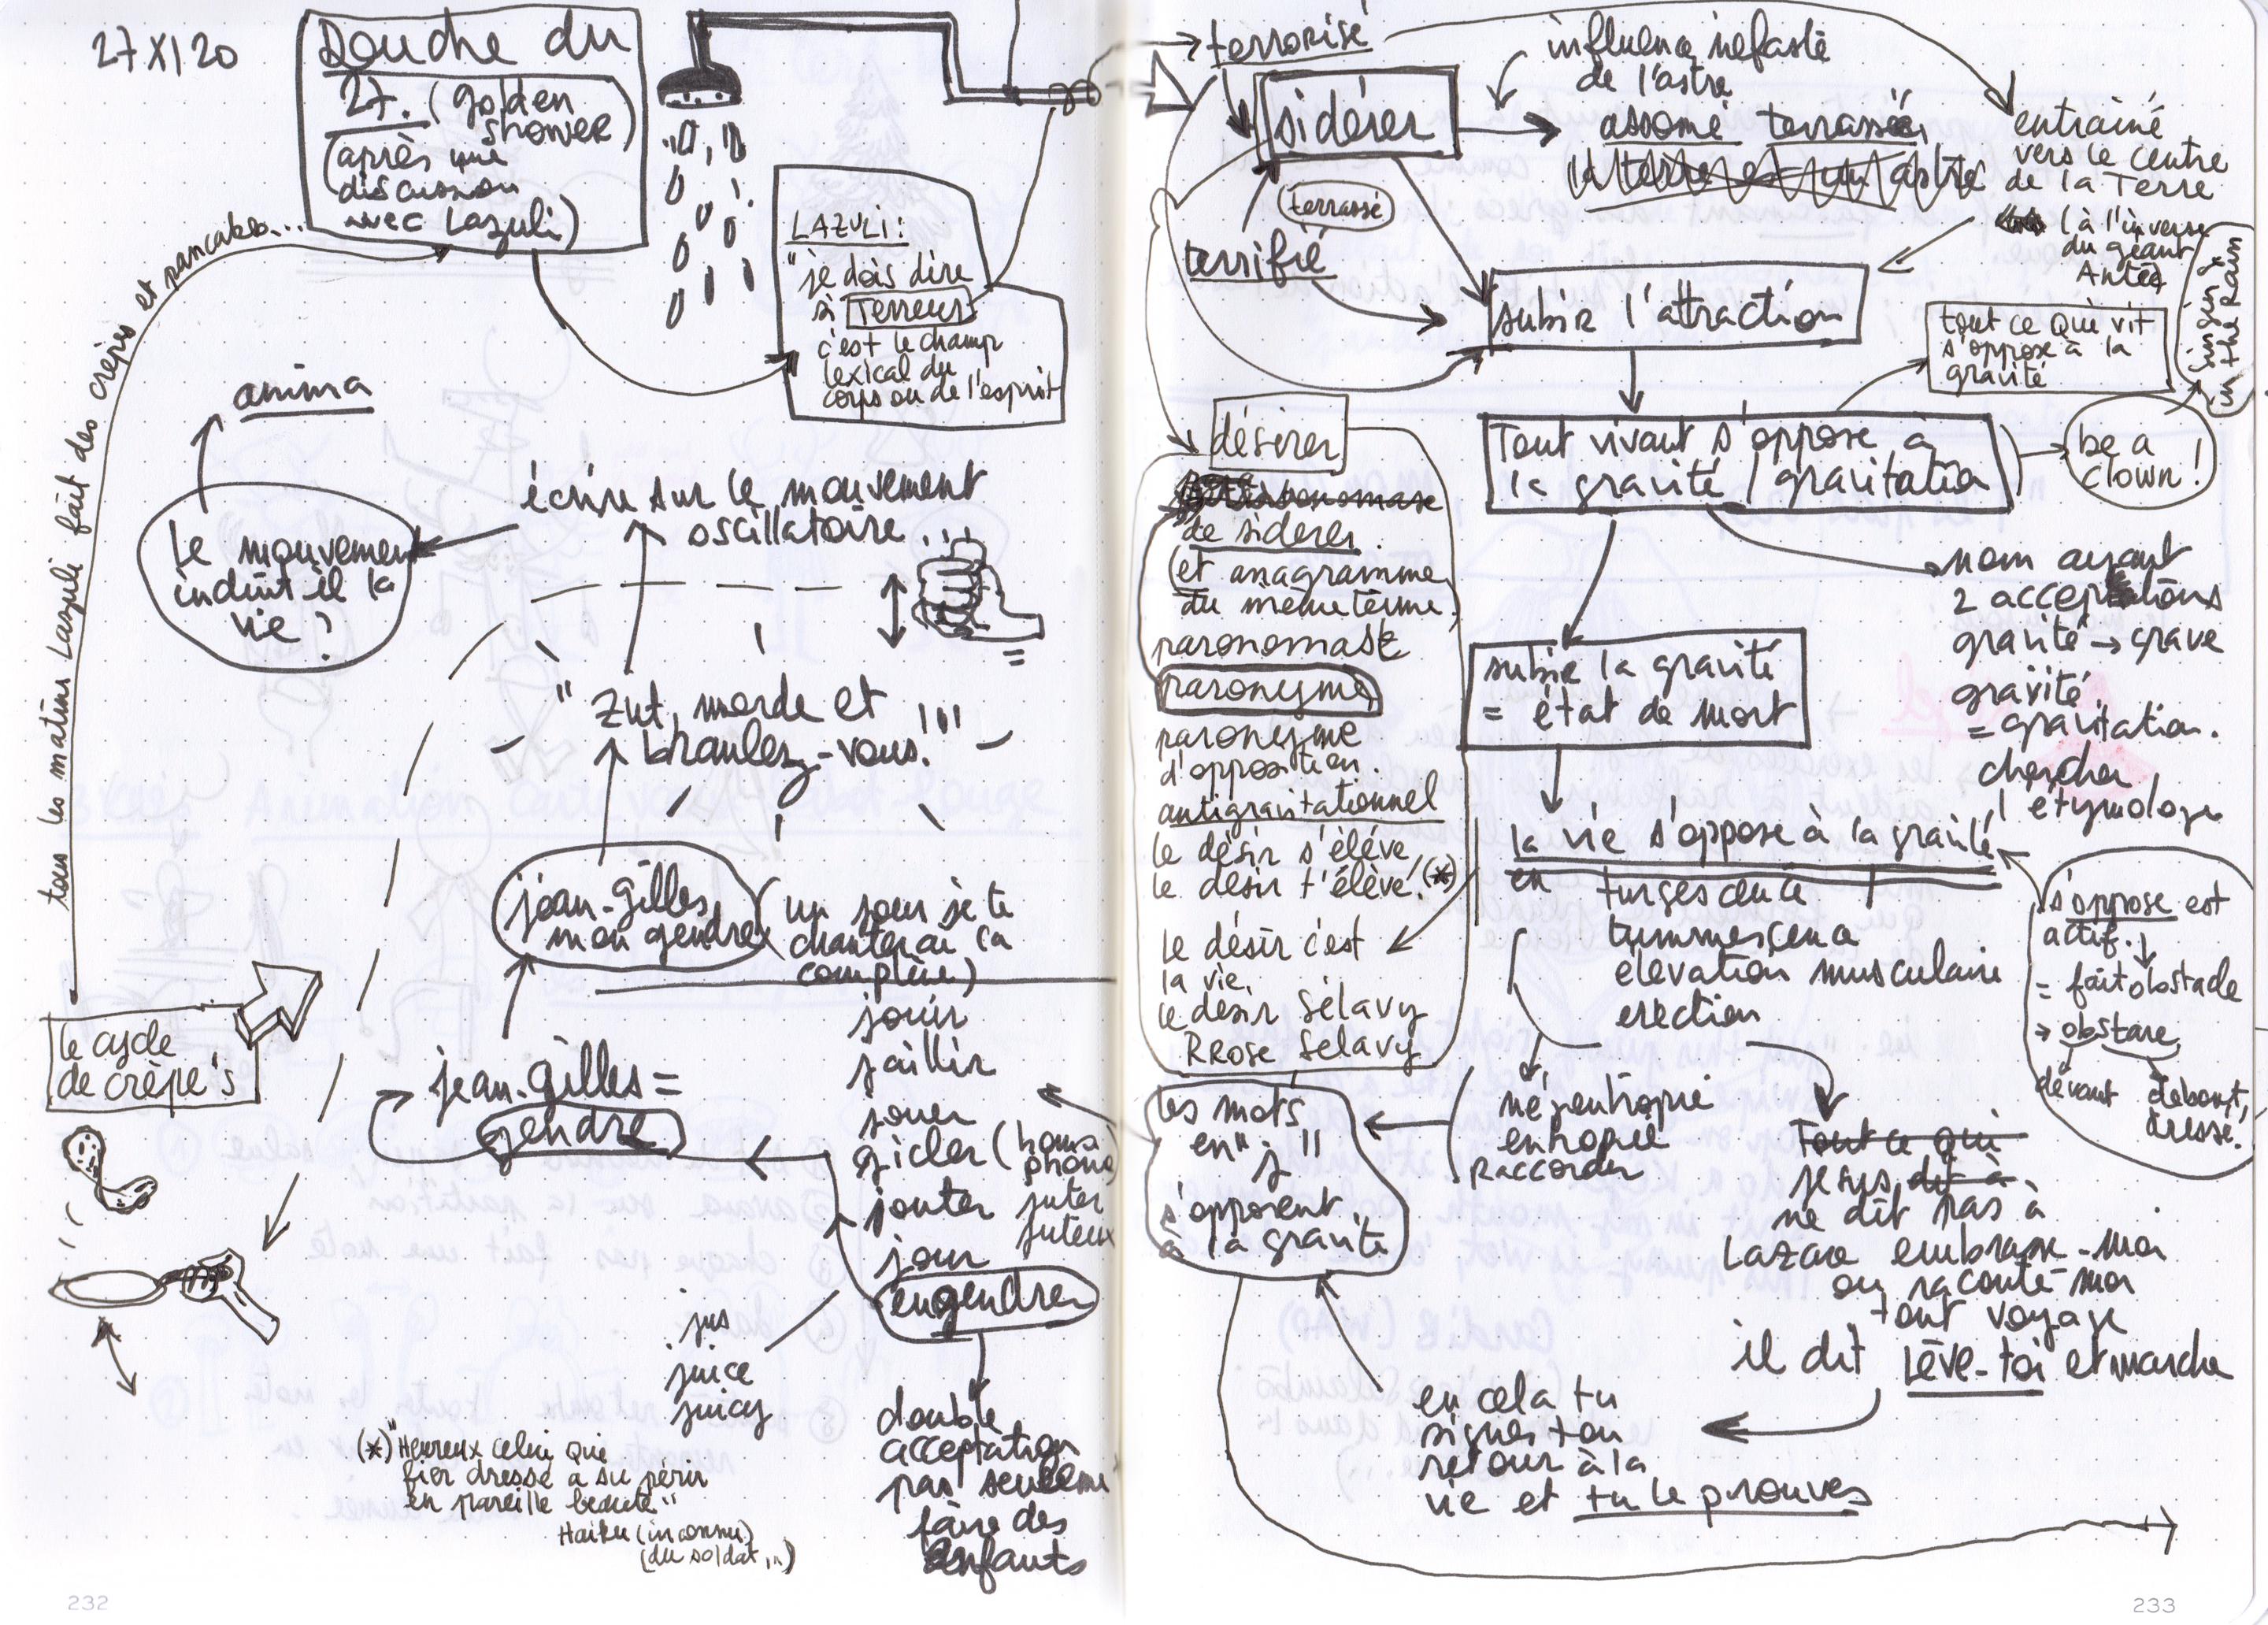 27 XI 20
Douche du
27. (golden
shower)
(après une
discussion
avec Lazuli)
LAZULI :
"je dois dire
si Terreur
c'est le champ
lexical du
corps ou de l'esprit
tous les matins Lazuli fait des crèpes et pancakes...
anima
écrire sur le mouvement
oscillatoire...
Le mouvement
induit il la
vie ?
" Zut, merde et
branlez-vous."
jean-Gilles,
mon gendre
(un jour je te
chanterai la
complète)
jean-Gilles =
gendre
le cycle
de crèpe's
jouir
jaillir
jouer
gicler (homo
phone)
jouter juter
juteux
jour
engendrer
jus
juice
juicy
double
acceptation
pas seuleme
faire des
enfants
(*) "Heureux celui qui
fier dressé a su périr
en pareille beauté"
Haiku (inconnu)
(du soldat...)
232
terrorisé
influence néfaste
de l'astre
sidérer
assomé terrassé
la terre est un astre
entrainé
vers le centre
de la Terre
(à l'inverse
du géant
Antée)
(terrassé)
terrifié
subir l'attraction
tout ce qui vit
s'oppose à la
gravité
singing
in the rain
be a
clown !
Tout vivant s'oppose à
la gravité / gravitation
désirer
de siderer.
(et anagramme
du même terme)
paronomase
paronyme
paronyme
d'opposition.
antigravitationnel
le désir s'élève
le désir t'élève! (*)
le désir c'est
la vie.
le désir Sélavy
RRose Sélavy
nom ayant
2 acceptations
gravité → grave
gravité
= gravitation.
chercher
l'étymologie
subir la gravité
= état de mort
la vie s'oppose à la gravité
en turgescence
tummescence
élévation musculaire
erection
s'oppose est
actif.
= fait obstacle
→ obstare
devant debout,
dressé.
négentropie
entropie
raccorder
les mots
en "j"
s'opposent
à la gravité
Tout ce qui
jesus dit à
ne dit pas à
Lazare embrasse-moi
ou raconte-moi
tout voyage
il dit Lève-toi et marche
en cela tu
signes ton
retour à la
vie et tu le prouves
233